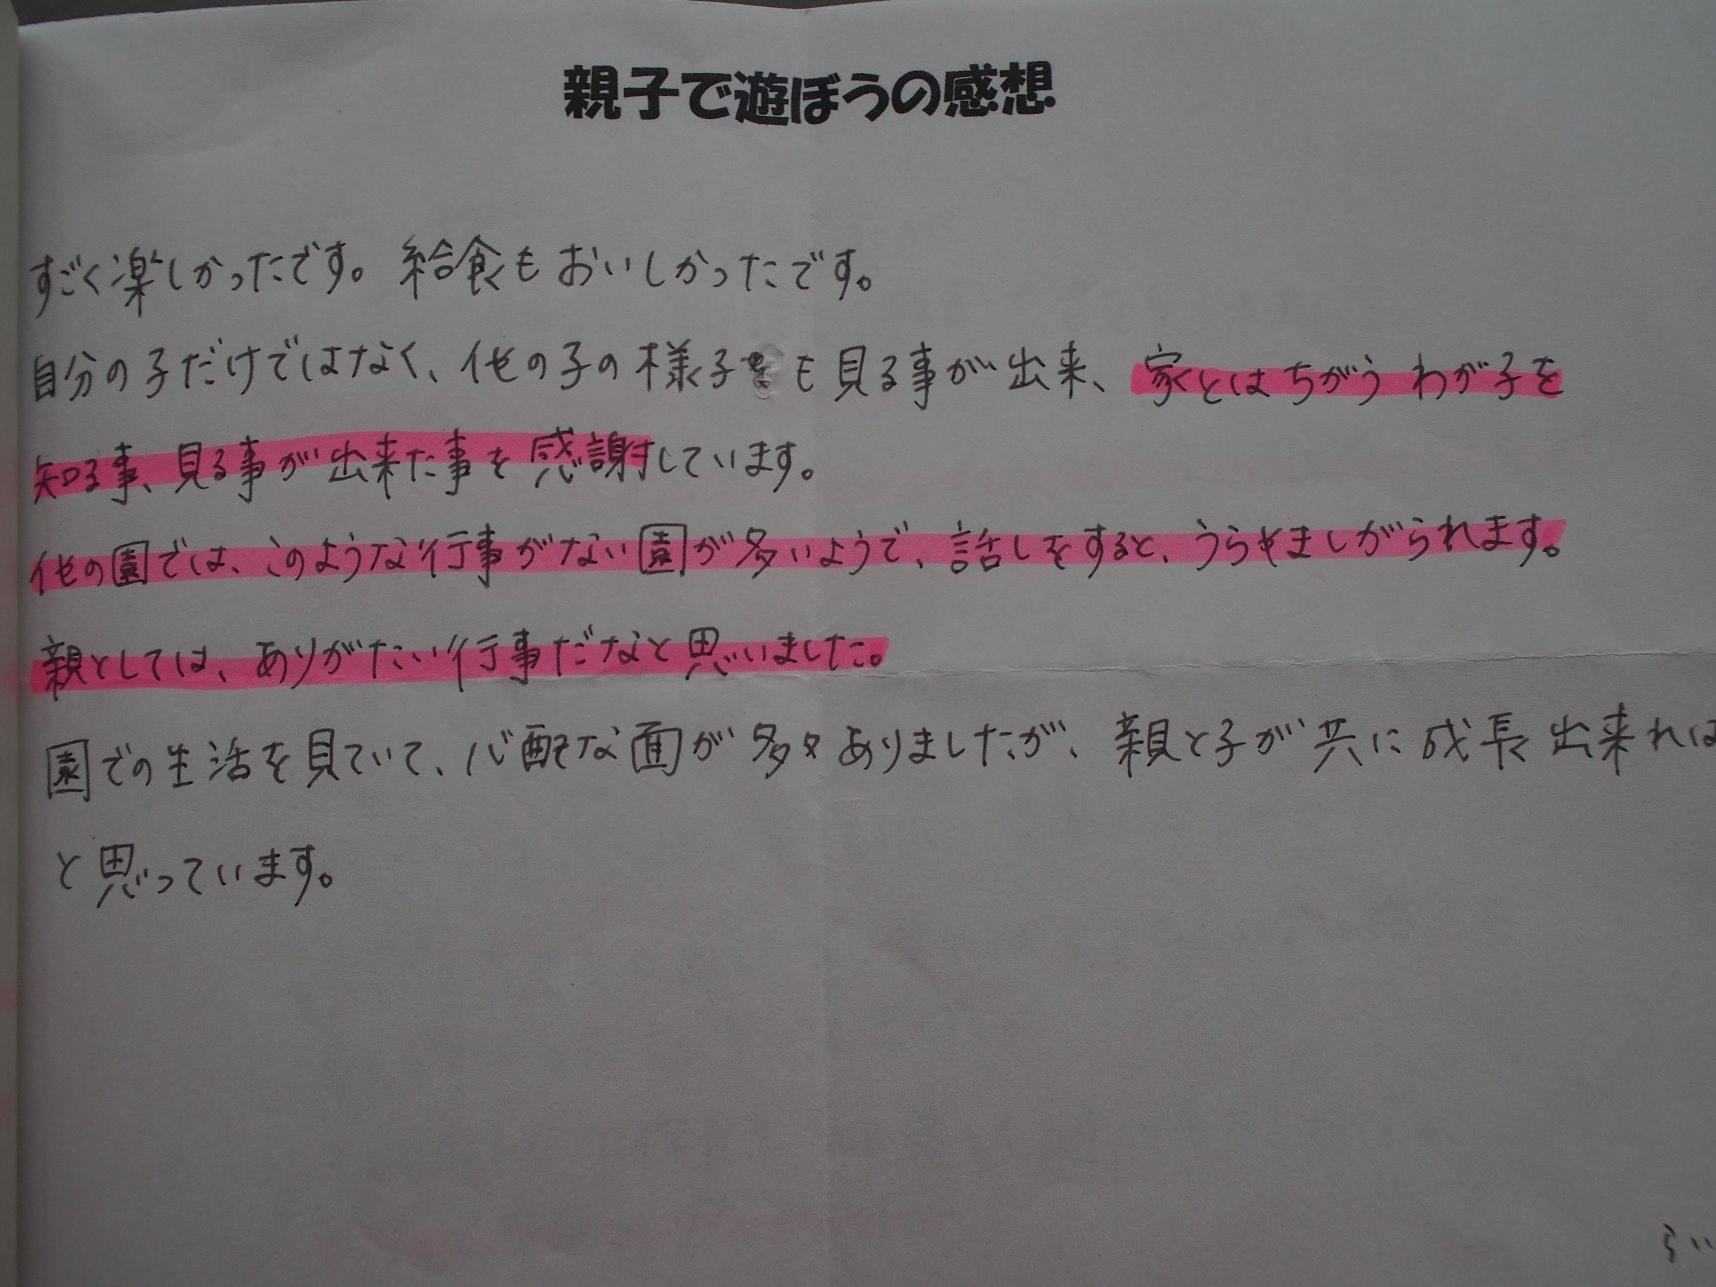 親子で遊ぼうの感想
すごく楽しかったです。給食もおいしかったです。
自分の子だけではなく、他の子の様子も見る事が出来、家とはちがうわが子を
知る事、見る事が出来た事を感謝しています。
他の園では、このような行事がない園が多いようで、話しをすると、うらやましがられます。
親としては、ありがたい行事だなと思いました。
園での生活を見ていて、心配な面が多々ありましたが、親と子が共に成長出来れば
と思っています。